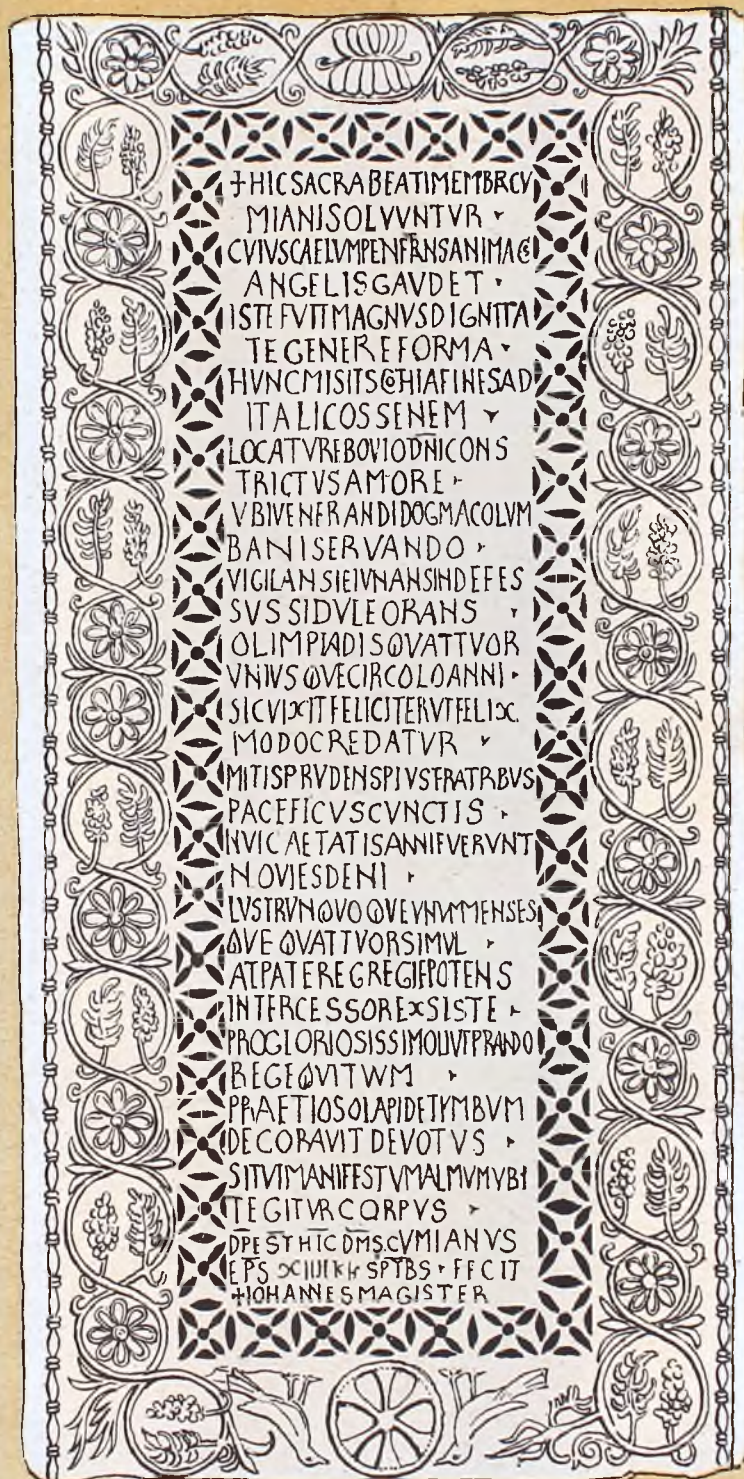 +HICSACRABEATIMEMBRCV
MIANISOLVVNTVR
CVIVSCAELVMPENERNSANIMAC
ANGELISGAVDET
ISTEFVITMAGNVSDIGNITA
TEGENEREFORMA
HVNCMISITSCOHIAFINESAD
ITALICOSSENEM
LOCATVREBOVIODNICONS
TRICTVSAMORE
VBIVENERANDIDOGMACOLVM
BANISERVANDO
VIGILANSIEIVNANSINDEFES
SVSSIDVLEORANS
OLIMPIADISQVATTVOR
VNIVSQVECIRCOLOANNI
SICVIXITFELICITERVTFELIX
MODOCREDATVR
MITISPRVDENSPIVSFRATRBVS
PACEFICVSCVNCTIS
HVICAETATISANNIFVERVNT
NOVIESDENI
LVSTRVNQVOQVEVNVMMENSES
QVEQVATTVORSIMVL
ATPATEREGREGIEPOTENS
INTERCESSOREXSISTE
PROGLORIOSISSIMOLIVTPRANDO
REGEQVITVVM
PRAETIOSOLAPIDETYMBVM
DECORAVITDEVOTVS
SITVTMANIFESTVMALMVMVBI
TEGITVRCORPVS
DPESTHICDMS.CVMIANVS
EPS SPTBS FECIT
+IOHANNESMAGISTER